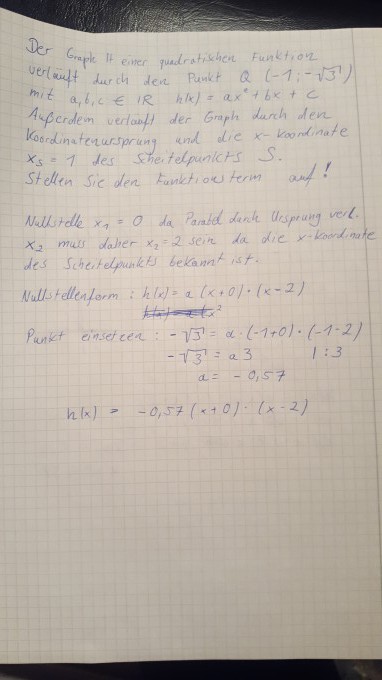 Der Graph H einer quadratischen Funktion
verläuft durch den Punkt Q (-1; -√3)
mit a, b, c ∈ IR h(x) = ax² + bx + c
Außerdem verläuft der Graph durch den
Koordinatenursprung und die x-Koordinate
x_S = 1 des Scheitelpunkts S.
Stellen Sie den Funktionsterm auf!
Nullstelle x₁ = 0 da Parabel durch Ursprung verl.
x₂ muss daher x₂ = 2 sein da die x-Koordinate
des Scheitelpunkts bekannt ist.
Nullstellenform : h(x) = a (x+0) · (x-2)
h(x) = a (x²
Punkt einsetzen : -√3 = a · (-1+0) · (-1-2)
-√3 = a 3 | : 3
a = - 0,57
h(x) = -0,57 (x+0) · (x-2)